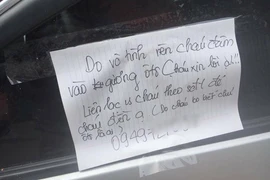 Do vô tình nên cháu đâm
vào gương ôtô Cháu xin lỗi ạ!!
Liên lạc vs cháu theo sđt để
cháu đền ạ (Do cháu ko biết chủ
0949